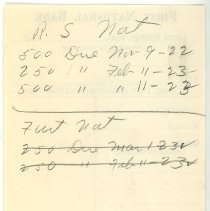 U. S. Nat
500 Due Nov 9-22
250 " Feb 11-23
500 " " 11-23
First Nat
250 Due Mar 1 23
250 " Feb 11-23